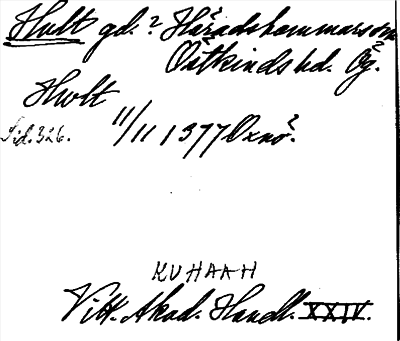 Hult gd.? Häradshammars sn
Östkinds hd. Ög.
Hwlt
Sid. 326. 11/11 1377 Oxnö?
KVHAAH
Vitt. Akad. Handl. XXIV.